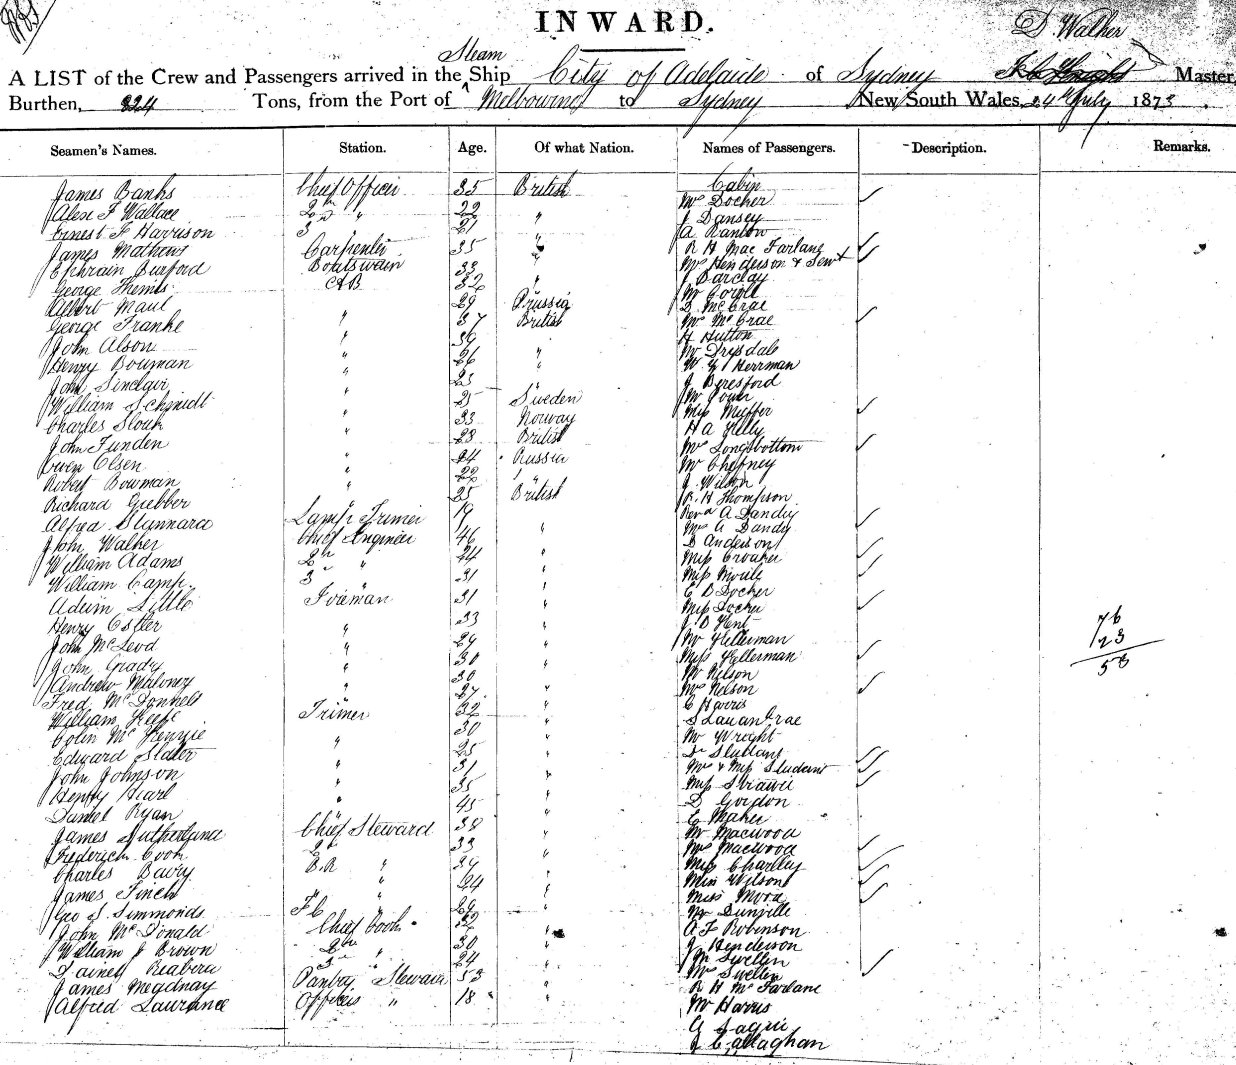 INWARD.
D. Walker
Steam
A LIST of the Crew and Passengers arrived in the Ship City of Adelaide of Sydney Master,
Burthen, 824 Tons, from the Port of Melbourne to Sydney New South Wales, 24th July 1873.
Seamen's Names. Station. Age. Of what Nation. Names of Passengers. Description. Remarks.
Cabin
James Banks Chief Officer 35 British Mrs Docher
Alex F Wallace 2nd " 22 " J Dansey
Ernest F Harrison 3 " 21 " A Ranson
James Mathews Carpenter 35 " R H Mac Farlane
Ephraim Burford Boatswain 33 " Mrs Henderson & Servt
George Themis AB 32 " J Barclay
Albert Maul " 29 Prussia D McCrae
George Franke " 37 British Mrs McCrae
John Alson " 39 H Hutton
Henry Bowman " 26 " Mr Drysdale
John Sinclair " 23 " W G Herrman
J Beresford
William Schmidt " 25 Sweden Mr Power
Charles Slouh " 33 Norway Miss Muffer
John Funden " 28 British H A Kelly
Owen Olsen " 24 Russia Mrs Longbottom
Robert Bowman " 22 " Mr Chefney
Richard Giebber " 25 British J. Wilton
R. H Thompson
Alfred Stannard Lamp Trimer 19 Revd A Dandy
John Walker Chief Engineer 46 " Mrs A Dandy
William Adams 2nd " 44 " D Anderson
William Camp 3 " 31 " Miss Croaker
Adam Little Fireman 31 " E B Docher
Henry Ostler " 33 " Miss Docher
John McLeod " 29 " J. B Kent
76
John Grady " 30 " Mr Kellerman
23
Andrew Maloney " 30 " Miss Kellerman
53
Fred McDonnell " 27 " Mr Nelson
Mrs Nelson
William Keefe Trimer 32 " C Harris
Colin McKenzie " 30 "
Edward Slater " 25 " Mr Wright
John Johnson " 31 "
Henry Hearl " 35 "
Daniel Ryan " 45 " D Gordon
E Maher
James Sutherland Chief Steward 38 " Mr Macwood
Frederick Cook 2nd 33 " Mrs Macwood
Charles Barry B.R " 34 " Miss Charlley
James Finch " 44 " Miss Wilson
Geo S. Simmonds F C " 29 " Miss Mood
John McDonald Chief Cook " Mr Dunville
William J Brown 2nd " 30 " A F Robinson
Daniel 3rd " 24 " J Henderson
James Pantry Steward 53 " Mr Swellen
Alfred Laurance Officers " 18 " Mrs Swellen
R H McFarlane
Mr Harris
J Callaghan